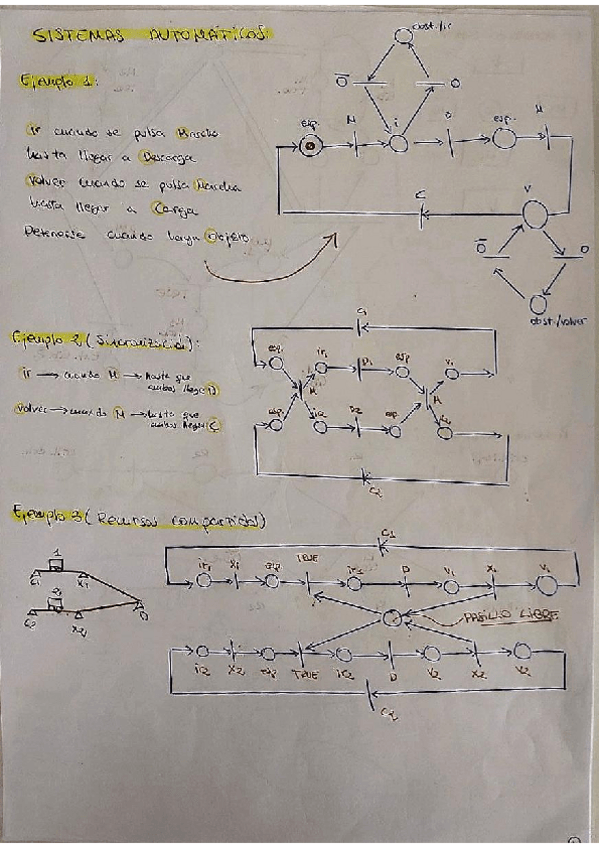 SISTEMAS AUTOMÁTICOS
Ejemplo 1:
ir cuando se pulsa Marcha
hasta llegar a Descarga
Volver cuando se pulsa Marcha
hasta llegar a Carga
Detenerse cuando haya Objeto
obst./ir
O̅ O
esp. M i D esp. M
C V
O̅ O
obst./volver
Ejemplo 2 (Sincronización):
ir → cuando M → hasta que
ambos llegan D
volver → cuando M → hasta que
ambos llegan C
C1
esp. ir1 D1 esp V1
M M
esp. ir2 D2 esp. V2
C2
Ejemplo 3 (Recursos compartidos)
C1
1
C1 X1
2
C2 X2 D
ir1 X1 esp TRUE ir1 D V1 X1 V1
PASILLO LIBRE
ir2 X2 esp TRUE ir2 D V2 X2 V2
C2